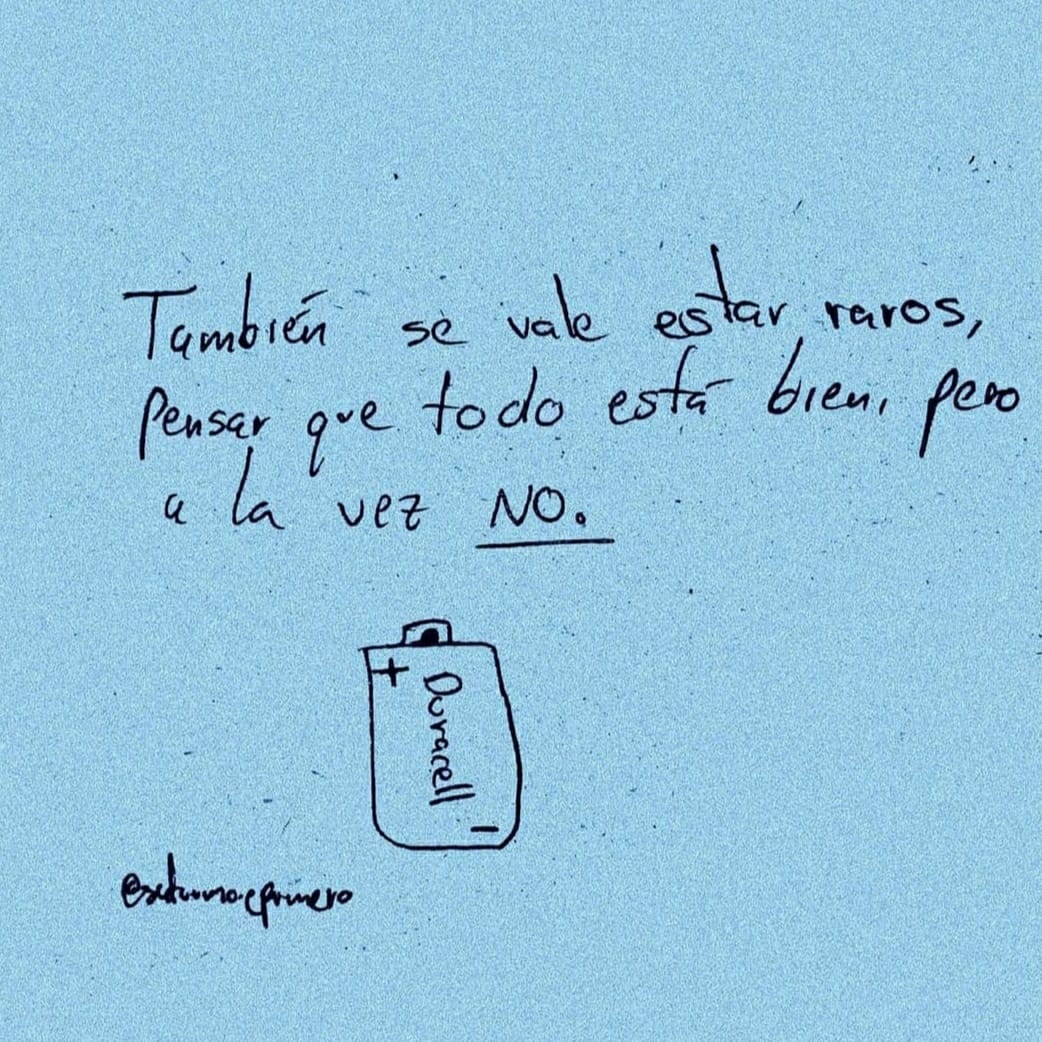 También se vale estar raros,
Pensar que todo está bien, pero
a la vez NO.
+
Duracell
-